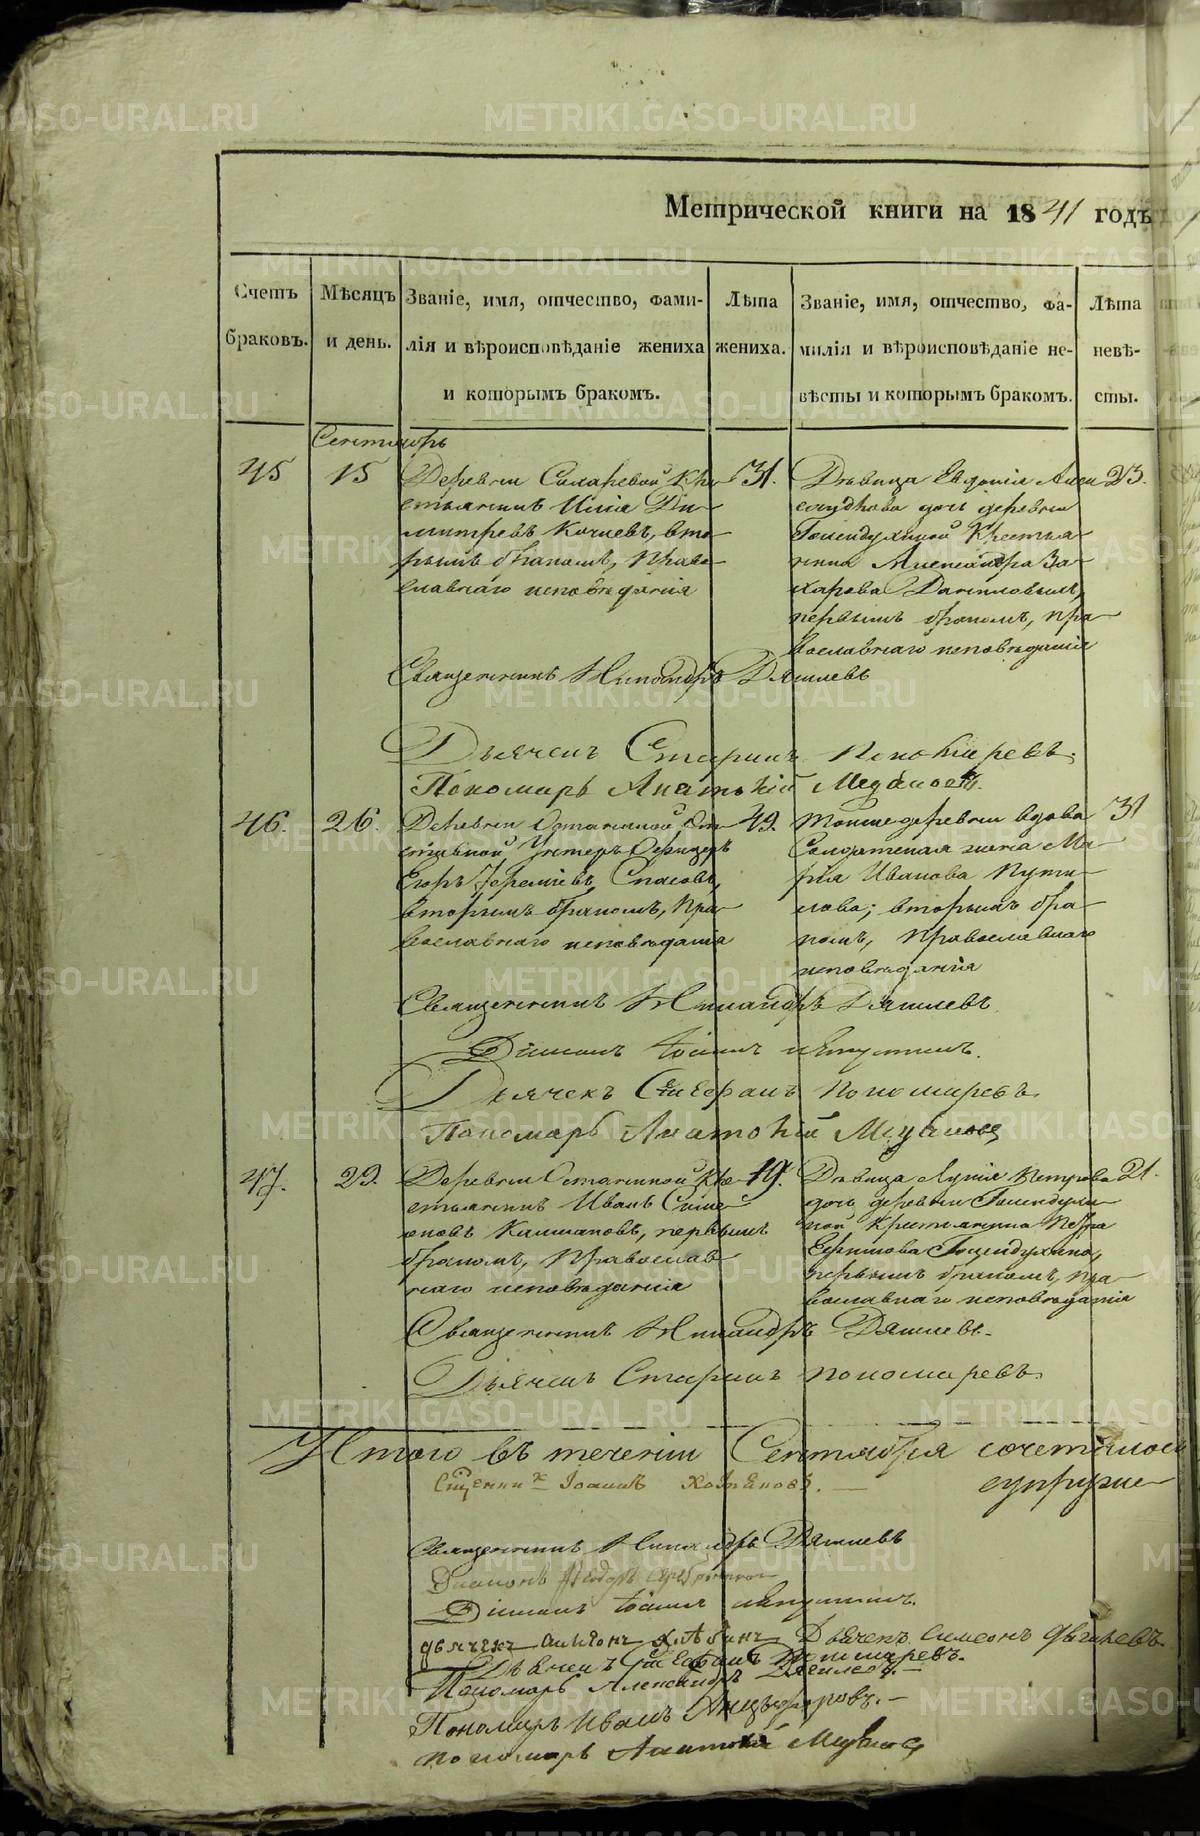 Метрической книги на 1841 годъ
Счетъ браковъ.
Мѣсяцъ и день.
Званіе, имя, отчество, фами-
лія и вѣроисповѣданіе жениха
и которымъ бракомъ.
Лѣта
жениха.
Званіе, имя, отчество, фа-
милія и вѣроисповѣданіе не-
вѣсты и которымъ бракомъ.
Лѣта
невѣ-
сты.
Сентябрь
45
15
Деревни Кре-
стьянинъ Илія Ди-
митревъ вто-
рымъ бракомъ, Право-
славнаго исповѣданія
31.
Дѣвица Евдокія Алек
сандрова дочь деревни
Голендухиной Крестья-
нина Александра За-
харова Даниловыхъ,
первымъ бракомъ, пра-
вославнаго исповѣданія
23.
Священникъ Никандръ Дягилевъ
Дьячекъ Стефанъ Пономаревъ.
Пономарь
46.
26.
Деревни Останиной От-
ставной Унтеръ Офицеръ
Егоръ
вторымъ бракомъ, Пра-
вославнаго исповѣданія
49.
Тойже деревни вдова
Солдатская жена Ма-
рія Иванова Пути-
лова; вторымъ бра-
комъ, Православнаго
исповѣданія
31
Священникъ Никандръ Дягилевъ
Діаконъ Іоаннъ
Дьячекъ Стефанъ Пономаревъ.
Пономарь
47.
29.
Деревни Останиной Кре-
стьянинъ Иванъ Симе-
оновъ первымъ
бракомъ, Православ-
наго исповѣданія
19.
Дѣвица Петрова
дочь деревни Голендухи-
ной Крестьянина Петра
Ефимова Голендухина,
первымъ бракомъ, пра-
вославнаго исповѣданія
21.
Священникъ Никандръ Дягилевъ.
Дьячекъ Стефанъ Пономаревъ.
Итого въ теченіи Сентября сочеталось
супруже
Іоаннъ
Священникъ Никандръ Дягилевъ
Діаконъ
Діаконъ Іоаннъ
дьячекъ Дьячекъ Симеонъ Дягилевъ.
Дьячекъ Стефанъ Пономаревъ.
Пономарь Александръ Дягилевъ.
Пономарь Иванъ
Пономарь
METRIKI.GASO-URAL.RU